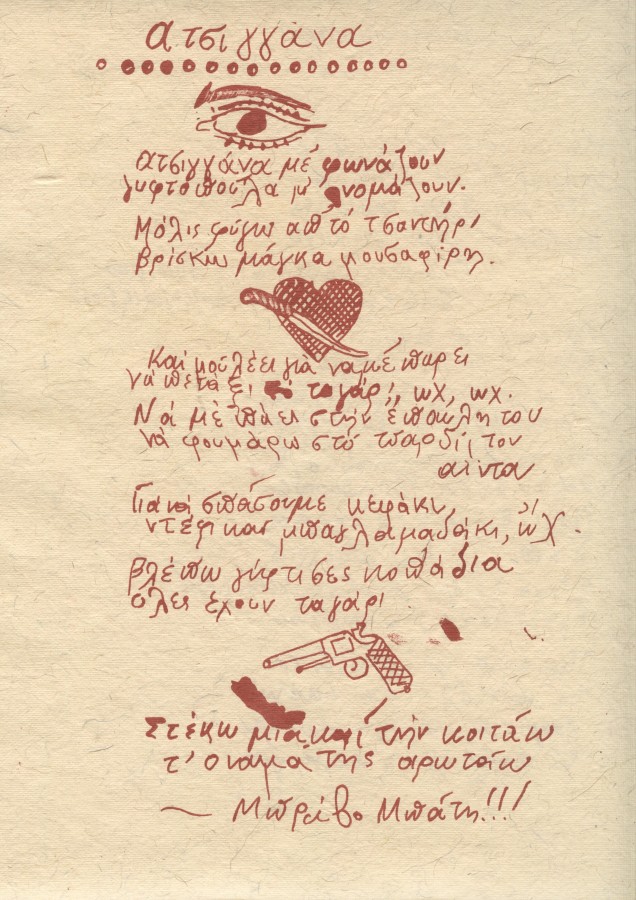 ατσιγγάνα
ατσιγγάνα μέ φωνάζουν
γυφτοπούλα μ' ονομάζουν.
Μόλις φύγω απτό τσαντήρι
βρίσκω μάγκα μουσαφίρη.
Καί μούλέει γιά νά μέ πάρει
νά πετάξει τό ταγάρι, ωχ, ωχ.
Νά μέ πάει στήν έπαυλη του
νά φουμάρω στό τσαρδί του
Γιά νά σπάσουμε κεφάκι,
ντέφι και μπαγλαμαδάκι, ώχ.
βλέπω γύφτισες κοπάδια
όλες έχουν ταγάρι
Στέκω μιά καί τήν κοιτάω
τ' όνομά της αρωτάω
— Μπράβο Μπάτη!!!